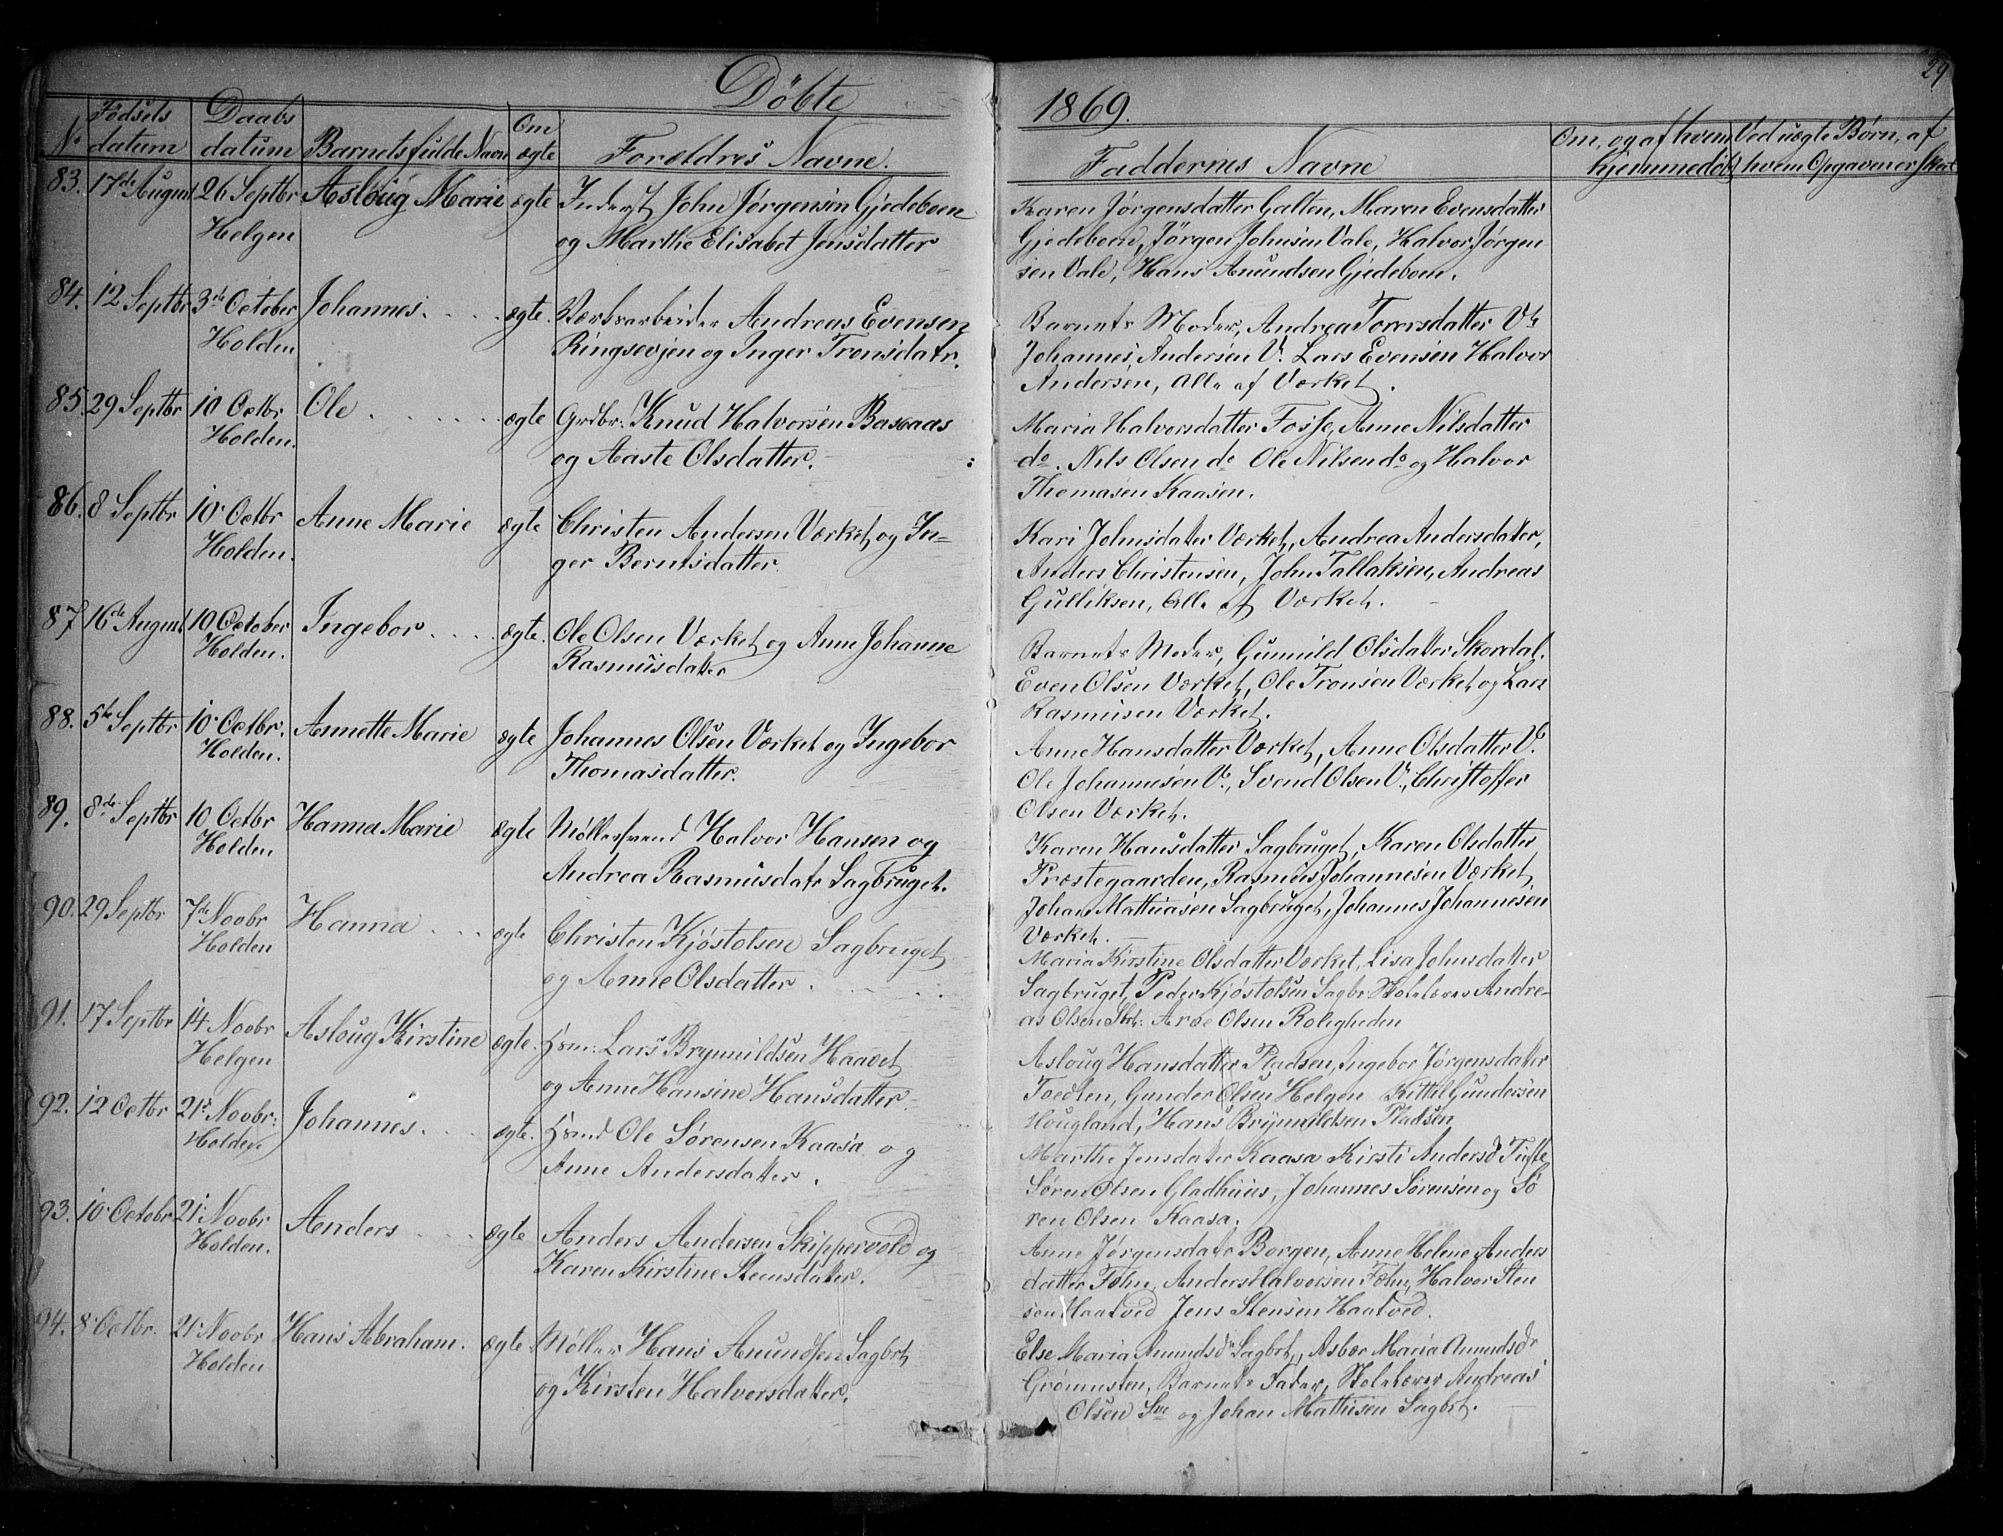 Döbte
1869.
29
No
Fødsels datum
Daabs datum
Barnets fulde Navn
Om ægte
Forældres Navne.
Faddernes Navne
Om, og af hvem hjemmedøbt
Ved uægte Børn, af hvem Opgaven er skeet
83. 17de August 26 Septbr Asloug Marie ægte Inderst John Jørgensen Gjedeboen
Helgen og Marthe Elisabet Jensdatter
Karen Jørgensdatter Galten, Maren Evensdatter
Gjedeboen, Jörgen Johnsen Vale, Halvor Jørgen
sen Vale, Hans Anundsen Gjedeboen.
84. 12 Septbr 3die October Johannes. ægte. Værksarbeider Andreas Evensen
Holden Ringsevjen og Inger Tronsdatr.
Barnets Moder, Andrea Torersdatter Vk
Johannes Andersen V. Lars Evensen Halvor
Andersen, Alle af Værket.
85. 29 Septbr 10 Octbr Ole ægte Grdbr: Knud Halvorsen Basaas
Holden. og Aaste Olsdatter.
Maria Halversdatter Fosse, Anne Nilsdatter
do. Nils Olsen do Ole Nilsen do og Halvor
Thomasen Kaasen.
86. 8 Septbr 10 Octbr Anne Marie ægte Christen Andersen Værket og In-
Holden. ger Berntsdatter
Kari Johnsdater Værket, Andrea Andersdater,
Anders Christensen, John Tallaksen, Andreas
Gulliksen, Alle af Værket.
87 16de August 10 October Ingebor ægte. Ole Olsen Værket og Anne Johanne
Holden. Rasmusdater
Barnets Moder, Gunnild Olsdatter Skordal.
Even Olsen Værket, Ole Tronsen Værket og Lars
Rasmusen Værket.
88. 5te Septbr 10 Octbr. Annette Marie ægte Johannes Olsen Værket og Ingebor
Holden. Thomasdatter.
Anne Hansdatter Værket, Anne Olsdatter V.
Ole Johannesen V., Svend Olsen V., Christoffer
Olsen Værket.
89. 8de Septbr 10 Octbr Hanna Marie ægte Møllersvend Halvor Hansen og
Holden Andrea Rasmusdatr Sagbruget.
Karen Hansdatter Sagbruget, Karen Olsdatter
Præstegaarden, Rasmus Johannesen Værket,
Johan Mathiasen Sagbruget, Johannes Johannesen
Værket.
90. 29 Septbr 7de Novbr Hanna ægte Christen Kjøstolsen Sagbruget
Holden og Anne Olsdatter.
Maria Kirstine Olsdatter Værket, Lisa Johnsdatter
Sagbruget, Peder Kjøstolsen Sagbr Skolelærer Andre-
as Olsen Olsen Roligheden
91. 17 Septbr 14 Novbr Asloug Kirstine ægte. Hsm: Lars Brynnildsen Haavet
Helgen og Anne Hansine Hansdatter.
Asloug Hansdatter Pladsen, Ingebor Jørgensdater
Toedten, Gunder Olsen Helgen Kittil Gundersen
Hougland, Hans Brynnildsen Pladsen
92. 12 Octbr 21. Novbr: Johannes. ægte. Hsmd Ole Sørensen Kaasa og
Holden. Anne Andersdatter.
Marthe Jensdater Kaasa Kirsti Andersd Tufte
Søren Olsen Gladhuus, Johannes Sørensen og Sø
ren Olsen Kaasa.
93. 10 Octobr 21. Novbr Anders ægte Anders Andersen Skippervold og
Holden. Karen Kirstine Steensdater.
Anne Jørgensdatr Borgen, Anne Helene Anders
datter Fæhn, Anders Halvorsen Fæhn, Halvor Sten
sen Haatved Jens Stensen Haatved.
94. 8 Octbr. 21. Novbr Hans Abraham. ægte Møller Hans Anundsen Sagbrt
Holden og Kirsten Halversdatter.
Else Maria Anundsdr Sagbrt, Asbør Maria Anundsdr
Grønnsten, Barnets Fader, Skolelærer Andreas
Olsen og Johan Mathisen Sagbrt.